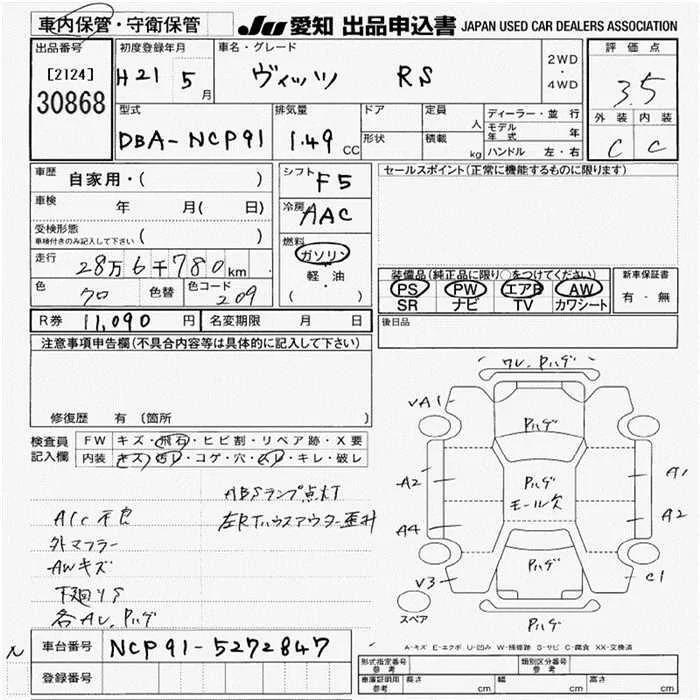 車内保管・守衛保管 JU 愛知 出品申込書 JAPAN USED CAR DEALERS ASSOCIATION
出品番号 初度登録年月 車名・グレード 評価点
[2124] H21 5月 ヴィッツ RS 2WD・4WD 3.5
30868 外装 内装
型式 排気量 ドア 定員 人 ディーラー・並行
DBA-NCP91 1.49 CC 形状 積載 kg モデル年式 年 C C
ハンドル 左・右
車歴 自家用・( ) シフト F5 セールスポイント(正常に機能するものに限ります)
車検 年 月( 日) 冷房 AAC
受検形態 車検付きのみ記入して下さい ( ) 燃料
走行 28万6千780km ガソリン
軽・油
( ・ )
色 クロ 色替 色コード 209
装備品(純正品に限り○をつけてください) 新車保証書
PS PW エアB AW 有・無
SR ナビ TV カワシート
R券 11,090円 名変期限 月 日 後日品
注意事項申告欄(不具合内容等は具体的に記入して下さい)
修復歴 有 (箇所
検査員記入欄 FW キズ・飛石・ヒビ割・リペア跡・X要
内装 キズ・汚レ・コゲ・穴・スレ・キレ・破レ
ABSランプ点灯
A/C不良 左Rタハウスアウター歪計
外マフラー
AWキズ
下廻りS
各AU,Pハゲ
ワレ,Pハゲ
VA1
Pハゲ
A2 Pハゲ A1
モール欠
A4 A2
Pハゲ
V3 C1
スペア Pハゲ
A-キズ E-エクボ U-凹み W-補修跡 S-サビ C-腐食 XX-交換済
N 車台番号 NCP91-5272847
登録番号
形式指定番号 参考 類別区分番号 参考
車庫証明用 参考 長さ cm 幅 cm 高さ cm